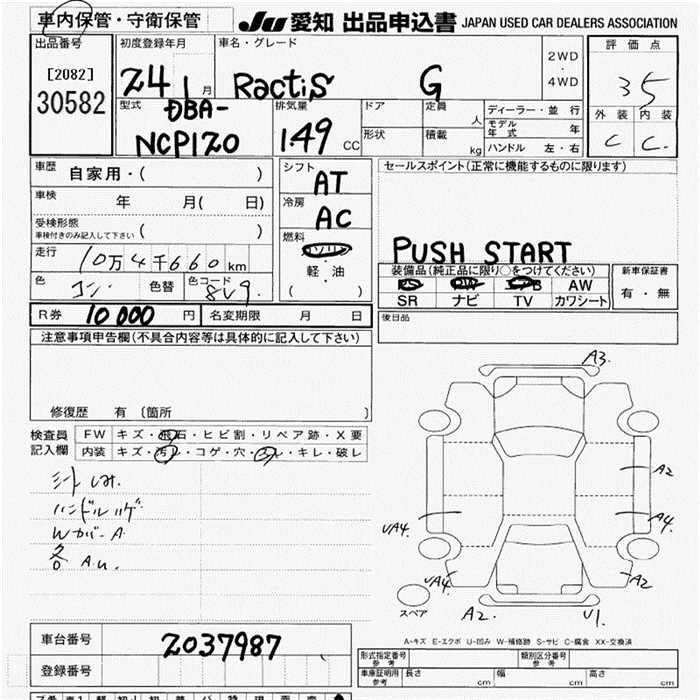 車内保管・守衛保管
JU 愛知 出品申込書 JAPAN USED CAR DEALERS ASSOCIATION
出品番号
[2082]
30582
初度登録年月
24 1 月
車名・グレード
Ractis G
2WD
・
4WD
評価点
35
外装 内装
C C
型式
DBA-
NCP120
排気量
1.49 CC
ドア
形状
定員 人
積載 kg
ディーラー・並行
モデル年式 年
ハンドル 左・右
車歴
自家用・( )
車検
年 月( 日)
受検形態
車検付きのみ記入して下さい ( )
走行
10万4千660km
色
色替
色コード
8V9.
シフト
AT
冷房
AC
燃料
ガソリン
・
軽・油
( )
セールスポイント(正常に機能するものに限ります)
PUSH START
装備品(純正品に限り○をつけてください)
PS PW エアB AW
SR ナビ TV カワシート
新車保証書
有・無
R券 10000 円 名変期限 月 日
後日品
注意事項申告欄(不具合内容等は具体的に記入して下さい)
修復歴 有 〔箇所 〕
検査員
記入欄
FW キズ・飛石・ヒビ割・リペア跡・X要
内装 キズ・汚レ・コゲ・穴・スレ・キレ・破レ
シートしみ.
ハンドルハゲ
Wカバー A
各 A.U.
A3.
A2
A4.
UA4.
UA4.
A2
A2.
U1.
スペア
A-キズ E-エクボ U-凹み W-補修跡 S-サビ C-腐食 XX-交換済
車台番号 2037987
登録番号
形式指定番号
参考
類別区分番号
参考
車庫証明用
参考
長さ cm 幅 cm 高さ cm